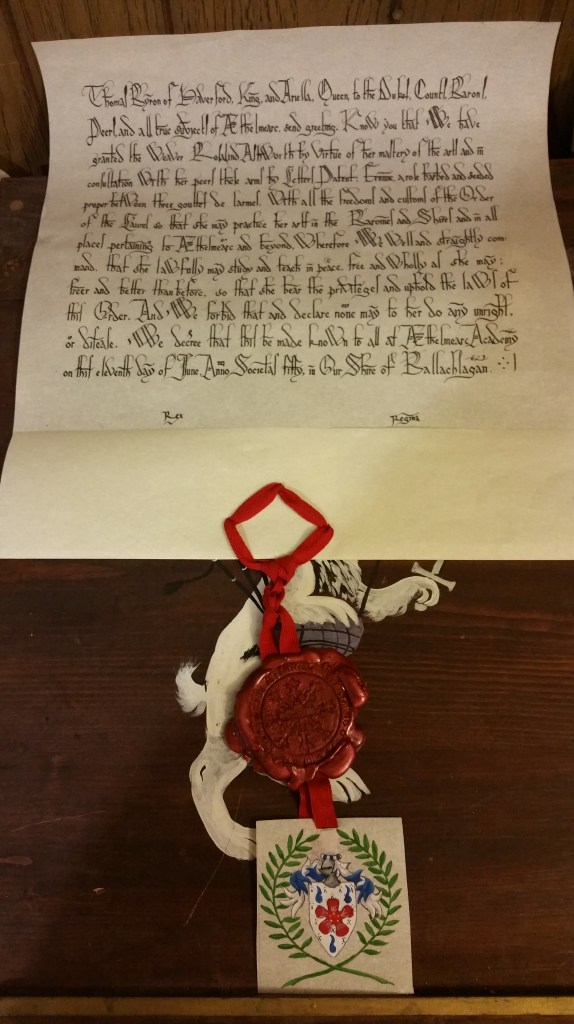 Thomas Byron of Haverford, King, and Ariella, Queen to the Dukes, Counts, Barons,
Peers, and all true subjects of Æthelmearc, send greeting. Know you that We have
granted the Weaver Roslind Ashworth by virtue of her mastery of the art and in
consultation With her peers these arms by Letters Patent: Ermine, a rose barbed and seeded
proper between three gouttes de larmes. With all the freedoms and customs of the Order
of the Laurel so that she may practice her art in the Baronies and Shires and in all
places pertaining to Æthelmearc and beyond. Wherefore We Will and straightly com-
mand, that she lawfully may study and teach in peace, free and Wholly as she may;
freer and better than before, so that she bear the privileges and uphold the laws of
this Order. And We forbid that and declare none may to her do any unright,
or disease. We decree that this be made known to all at Æthelmearc Academy
on this eleventh day of June, Anno Societatis fifty, in Our Shire of Ballachlagan.
Rex Regina